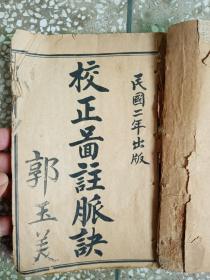 民國二年出版
校正啚註脈訣
郭玉美